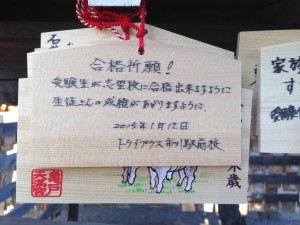 合格祈願!
受験生が志望校に合格出来ますように
生徒さんの成績があがりますように、
2015年1月12日
トライプラス市川駅前校
亀戸
天神
歳
家族
す
受験